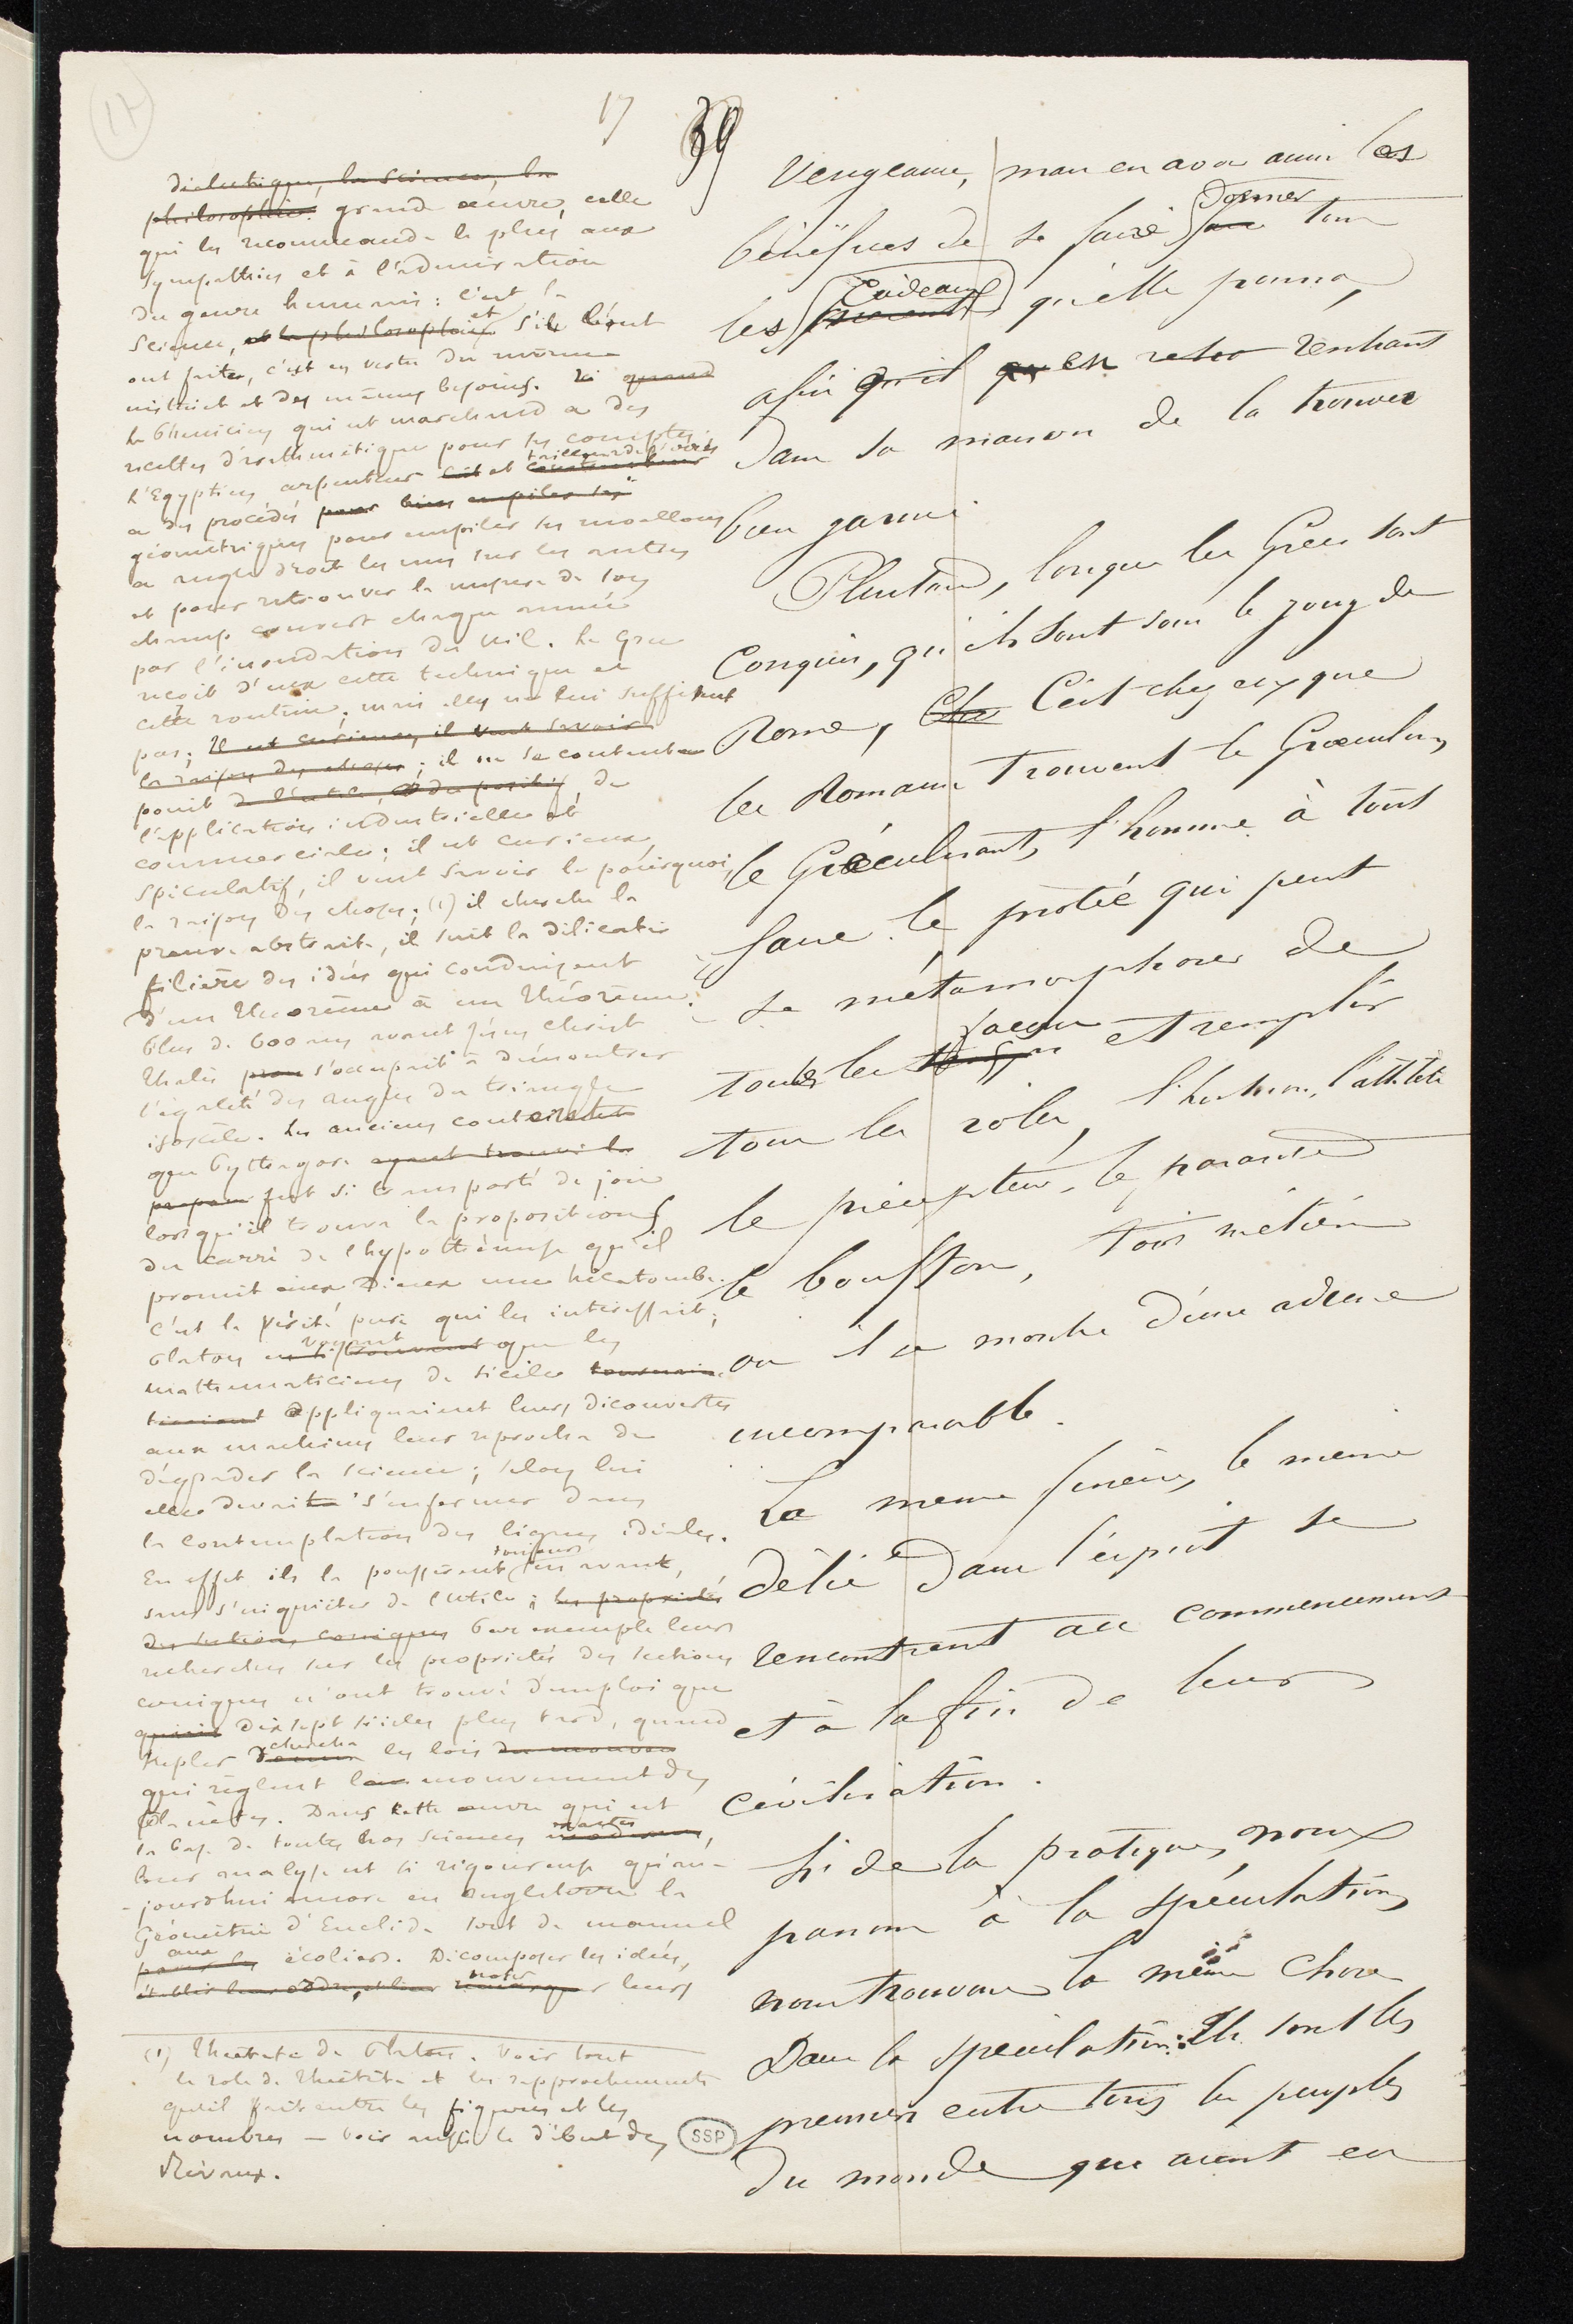 17
39
vengeance, mais en avoir aussi les
bénéfices de se faire donner tous
les cadeaux qu'elle pourra,
afin qu'il en rentrant
dans sa maison de la trouver
bien garnie
Plus tard, lorsque les Grecs sont
conquis, qu'ils sont sous le joug de
Rome, C'est chez eux que
les Romains trouvent le Græculus,
le Græculisant, l'homme à tout
faire, le protée qui peut
se métamorphoser de
toutes les façons et remplir
tous les roles, l'histrion, l'athlète
le précepteur, le parasite
le bouffon, tous métiers
où il se montre d'une adresse
incomparable.
La meme finesse, le meme
délié dans l'esprit se
rencontrent au commencement
et à la fin de leur
civilisation.
Si de la pratique, nous
passons à la spéculation,
nous trouvons la même chose
Dans la spéculation: Ils sont les
premiers entre tous les peuples
du monde qui aient eu
dialectique, la science, la
philosophie. grande œuvre, celle
qui les recommande le plus aux
sympathies et à l'admiration
du genre humain : c'est la
science, et la philosophie et s'ils l'ont
ont faite, c'est en vertu du même
instinct et des mêmes besoins. Le
le Phénicien qui est marchand a des
recettes d'arithmétique pour ses comptes.
L'Egyptien arpenteur et tailleur de pierres
a des procédés pour bien empiler ses
géométriques pour empiler ses moellons
a angle droit les uns sur les autres
et pour retrouver la mesure de son
champ couvert chaque année
par l'inondation du Nil. Le Grec
reçoit d'eux cette technique et
cette routine; mais elles ne lui suffisent
pas; Il est curieux, il veut savoir
la raison des choses; il ne se contente
point de l'utile, et du positif, de
l'application industrielle et
commerciale; il est curieux,
spéculatif, il veut savoir le pourquoi,
la raison des choses; (1) il cherche la
preuve abstraite, il suit la délicate
filière des idées qui conduisent
d'un théorème à un théorème.
Plus de 600 ans avant Jésus Christ
Thalès s'occupait à démontrer
l'égalité des angles du triangle
isoscèle. Les anciens content
que Pythagore ayant trouvé la
fut si transporté de joie
lorsqu'il trouva la proposition
du carré de l'hypothénuse qu'il
promit aux Dieux une hécatombe.
C'est la vérité pure qui les intéressait;
Platon voyant que les
mathématiciens de Sicile
appliquaient leurs découvertes
aux machines leur reprocha de
dégrader la science; selon lui
elle devait s'enfermer dans
la contemplation des lignes idéales.
En effet ils la poussèrent toujours en avant,
sans s'inquiéter de l'utile; les propriétés
des sections coniques Par exemple leurs
recherches sur les propriétés des sections
coniques n'ont trouvé d'emploi que
dix sept siècles plus tard, quand
Kepler chercha les lois du mouvem
qui règlent le mouvement des
planètes. Dans cette œuvre qui est
la base de toutes nos sciences exactes,
leur analyse est si rigoureuse qu'au-
-jourdhui encore en Angleterre la
Géométrie d'Euclide sert de manuel
aux écoliers. Décomposer les idées,
établir leur ordre, et leur noter leurs
(1) Théétète de Platon. Voir tout
le role de Théétète et les rapprochements
qu'il fait entre les figures et les
nombres — Voir aussi le début des
Rivaux.
SSP